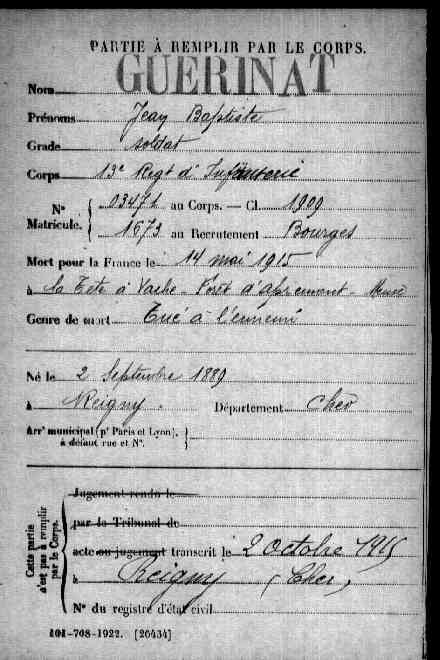 PARTIE À REMPLIR PAR LE CORPS.
GUERINAT
Nom
Prénoms Jean Baptiste
Grade soldat
Corps 13e Regt d'Infanterie
N° Matricule. { 03472 au Corps. — Cl. 1909
1673 au Recrutement Bourges
Mort pour la France le 14 mai 1915
à la Tête à Vache - Forêt d'apremont - Meuse
Genre de mort Tué à l'ennemi
Né le 2 Septembre 1889
à Reigny. Département Cher
Arrt municipal (pr Paris et Lyon), à défaut rue et N°. }
Cette partie n'est pas à remplir par le Corps.
Jugement rendu le
par le Tribunal de
acte ou jugement transcrit le 2 octobre 1915
à Reigny (Cher)
N° du registre d'état civil
101-708-1922. [26434]